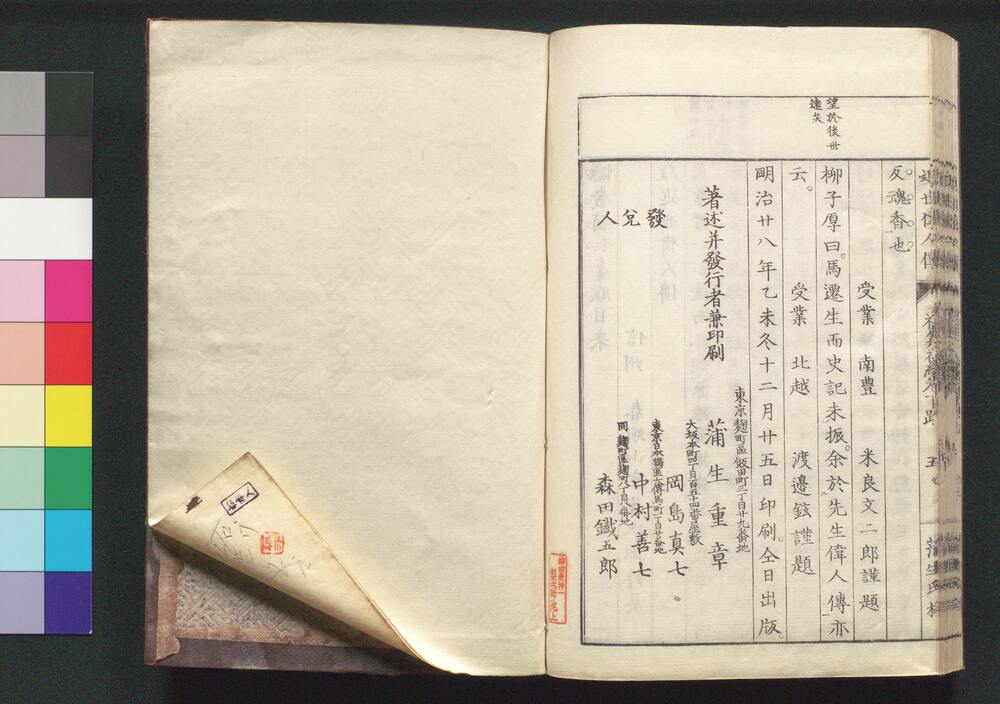 望於後世
遠矣
反魂香也
受業 南豊 米良文二郎謹題
柳子厚曰。馬遷生而史記未振。余於先生偉人傳亦
云。
受業 北越 渡邉鉉謹題
明治廿八年乙未冬十二月廿五日印刷。仝日出版。
東京麹町區飯田町二丁目廿九番地
著述并發行者兼印刷 蒲生重章
大坂本町四丁目百五十四番屋敷
發兌人 岡島真七
東京日本橋區大傳馬町一丁目廿番地
中村善七
同麹町區麹町八丁目八番地
森田鐵五郎